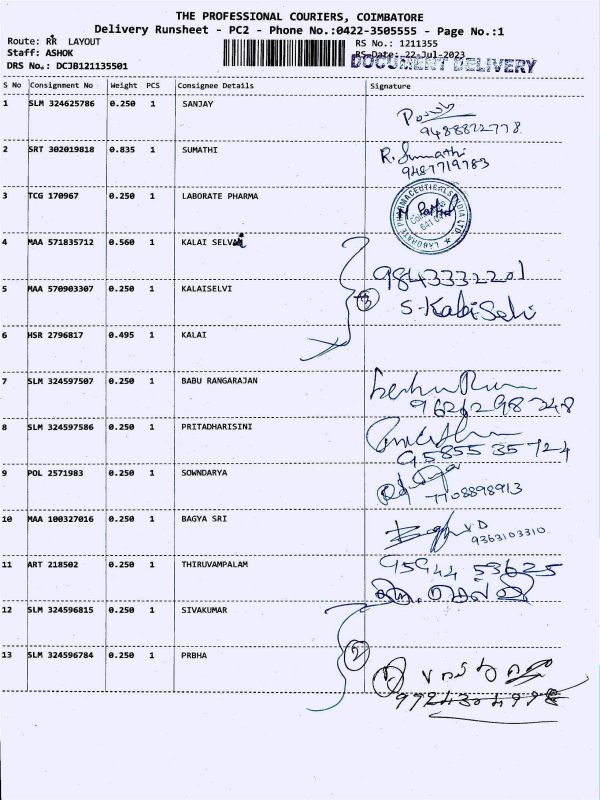 THE PROFESSIONAL COURIERS, COIMBATORE
Delivery Runsheet - PC2 - Phone No.:0422-3505555 - Page No.:1
Route: RR LAYOUT
RS No.: 1211355
Staff: ASHOK
RS Date: 22-Jul-2023
DOCUMENT DELIVERY
DRS No.: DCJB121135501
S No Consignment No Weight PCS Consignee Details Signature
1 SLM 324625786 0.250 1 SANJAY
9488822778
2 SRT 302019818 0.835 1 SUMATHI R. Sumathi
9487719783
3 TCG 170967 0.250 1 LABORATE PHARMA
LABORATE PHARMACEUTICALS INDIA LTD.
4 MAA 571835712 0.560 1 KALAI SELVI
9843332201
5 MAA 570903307 0.250 1 KALAISELVI 3 S-KalaiSelvi
6 HSR 2796817 0.495 1 KALAI
7 SLM 324597507 0.250 1 BABU RANGARAJAN
9626298248
8 SLM 324597586 0.250 1 PRITADHARISINI
9585535724
9 POL 2571983 0.250 1 SOWNDARYA
7708898913
10 MAA 100327016 0.250 1 BAGYA SRI
9363103310
11 ART 218502 0.250 1 THIRUVAMPALAM 95944 53625
12 SLM 324596815 0.250 1 SIVAKUMAR
13 SLM 324596784 0.250 1 PRBHA 2
9724304998